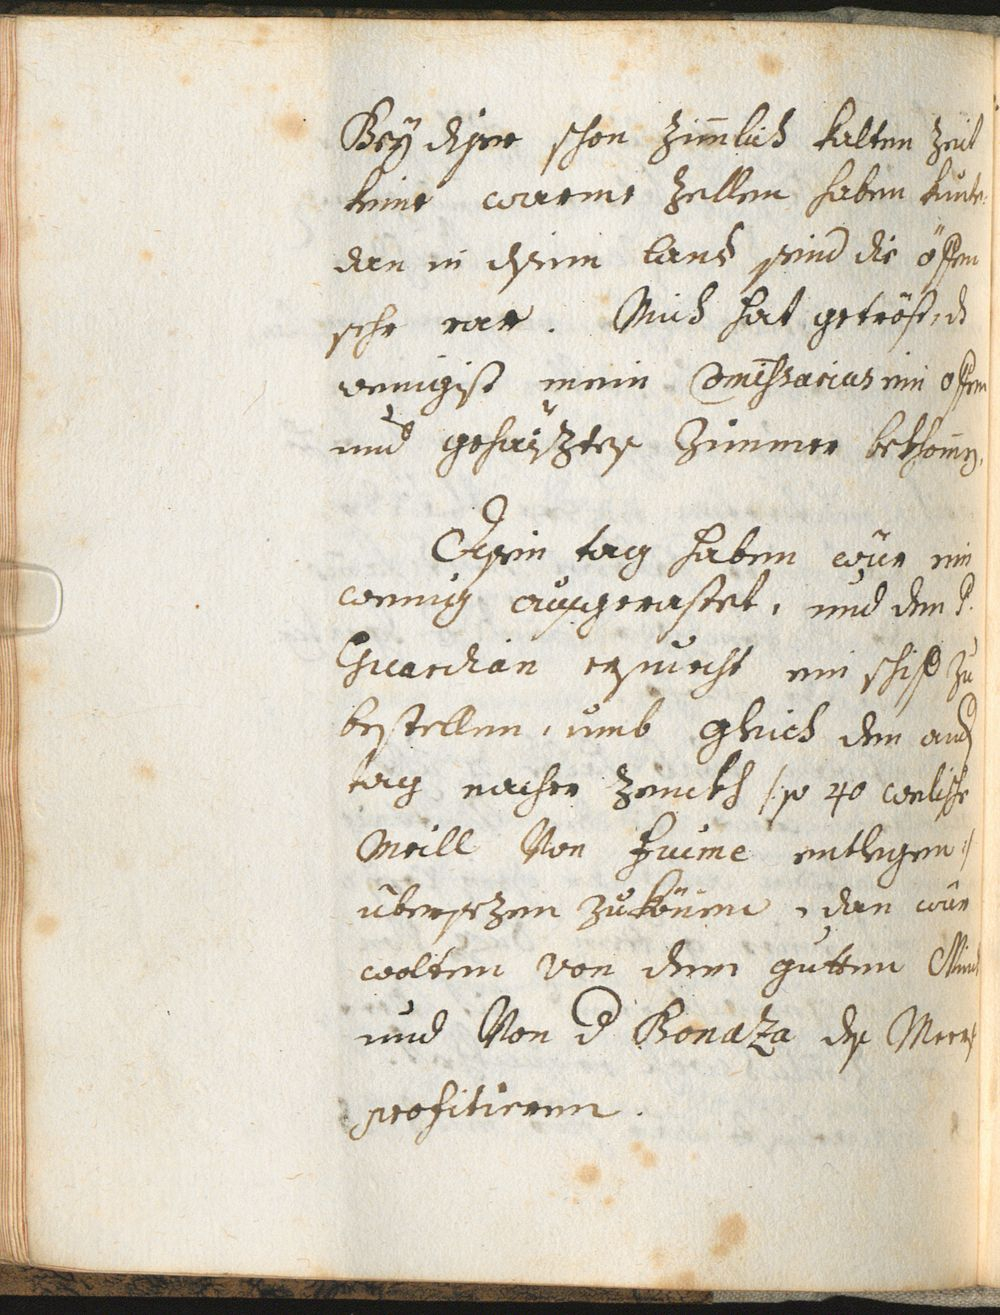 Bey diser schon zimlich kalten Zeit
keine warme Zellen haben kunte,
dan in disem land seind die öffen
sehr rar. Mich hat getröst, d
wenigist mein Comissarius ein offen
und gehaiztes Zimmer bekhomen.
Disen tag haben wür ein
wenig aussgerastet, und den P.
Guardian ersuecht ein schiff zu
bestellen, umb gleich den and
tag nacher Zenckh /: so 40 welische
Meill Von Fuime entlegen :/
übersezen zu könen, dan wür
wolten von dem gutten Wind
und Von d Bonaza des Meers
profitieren.